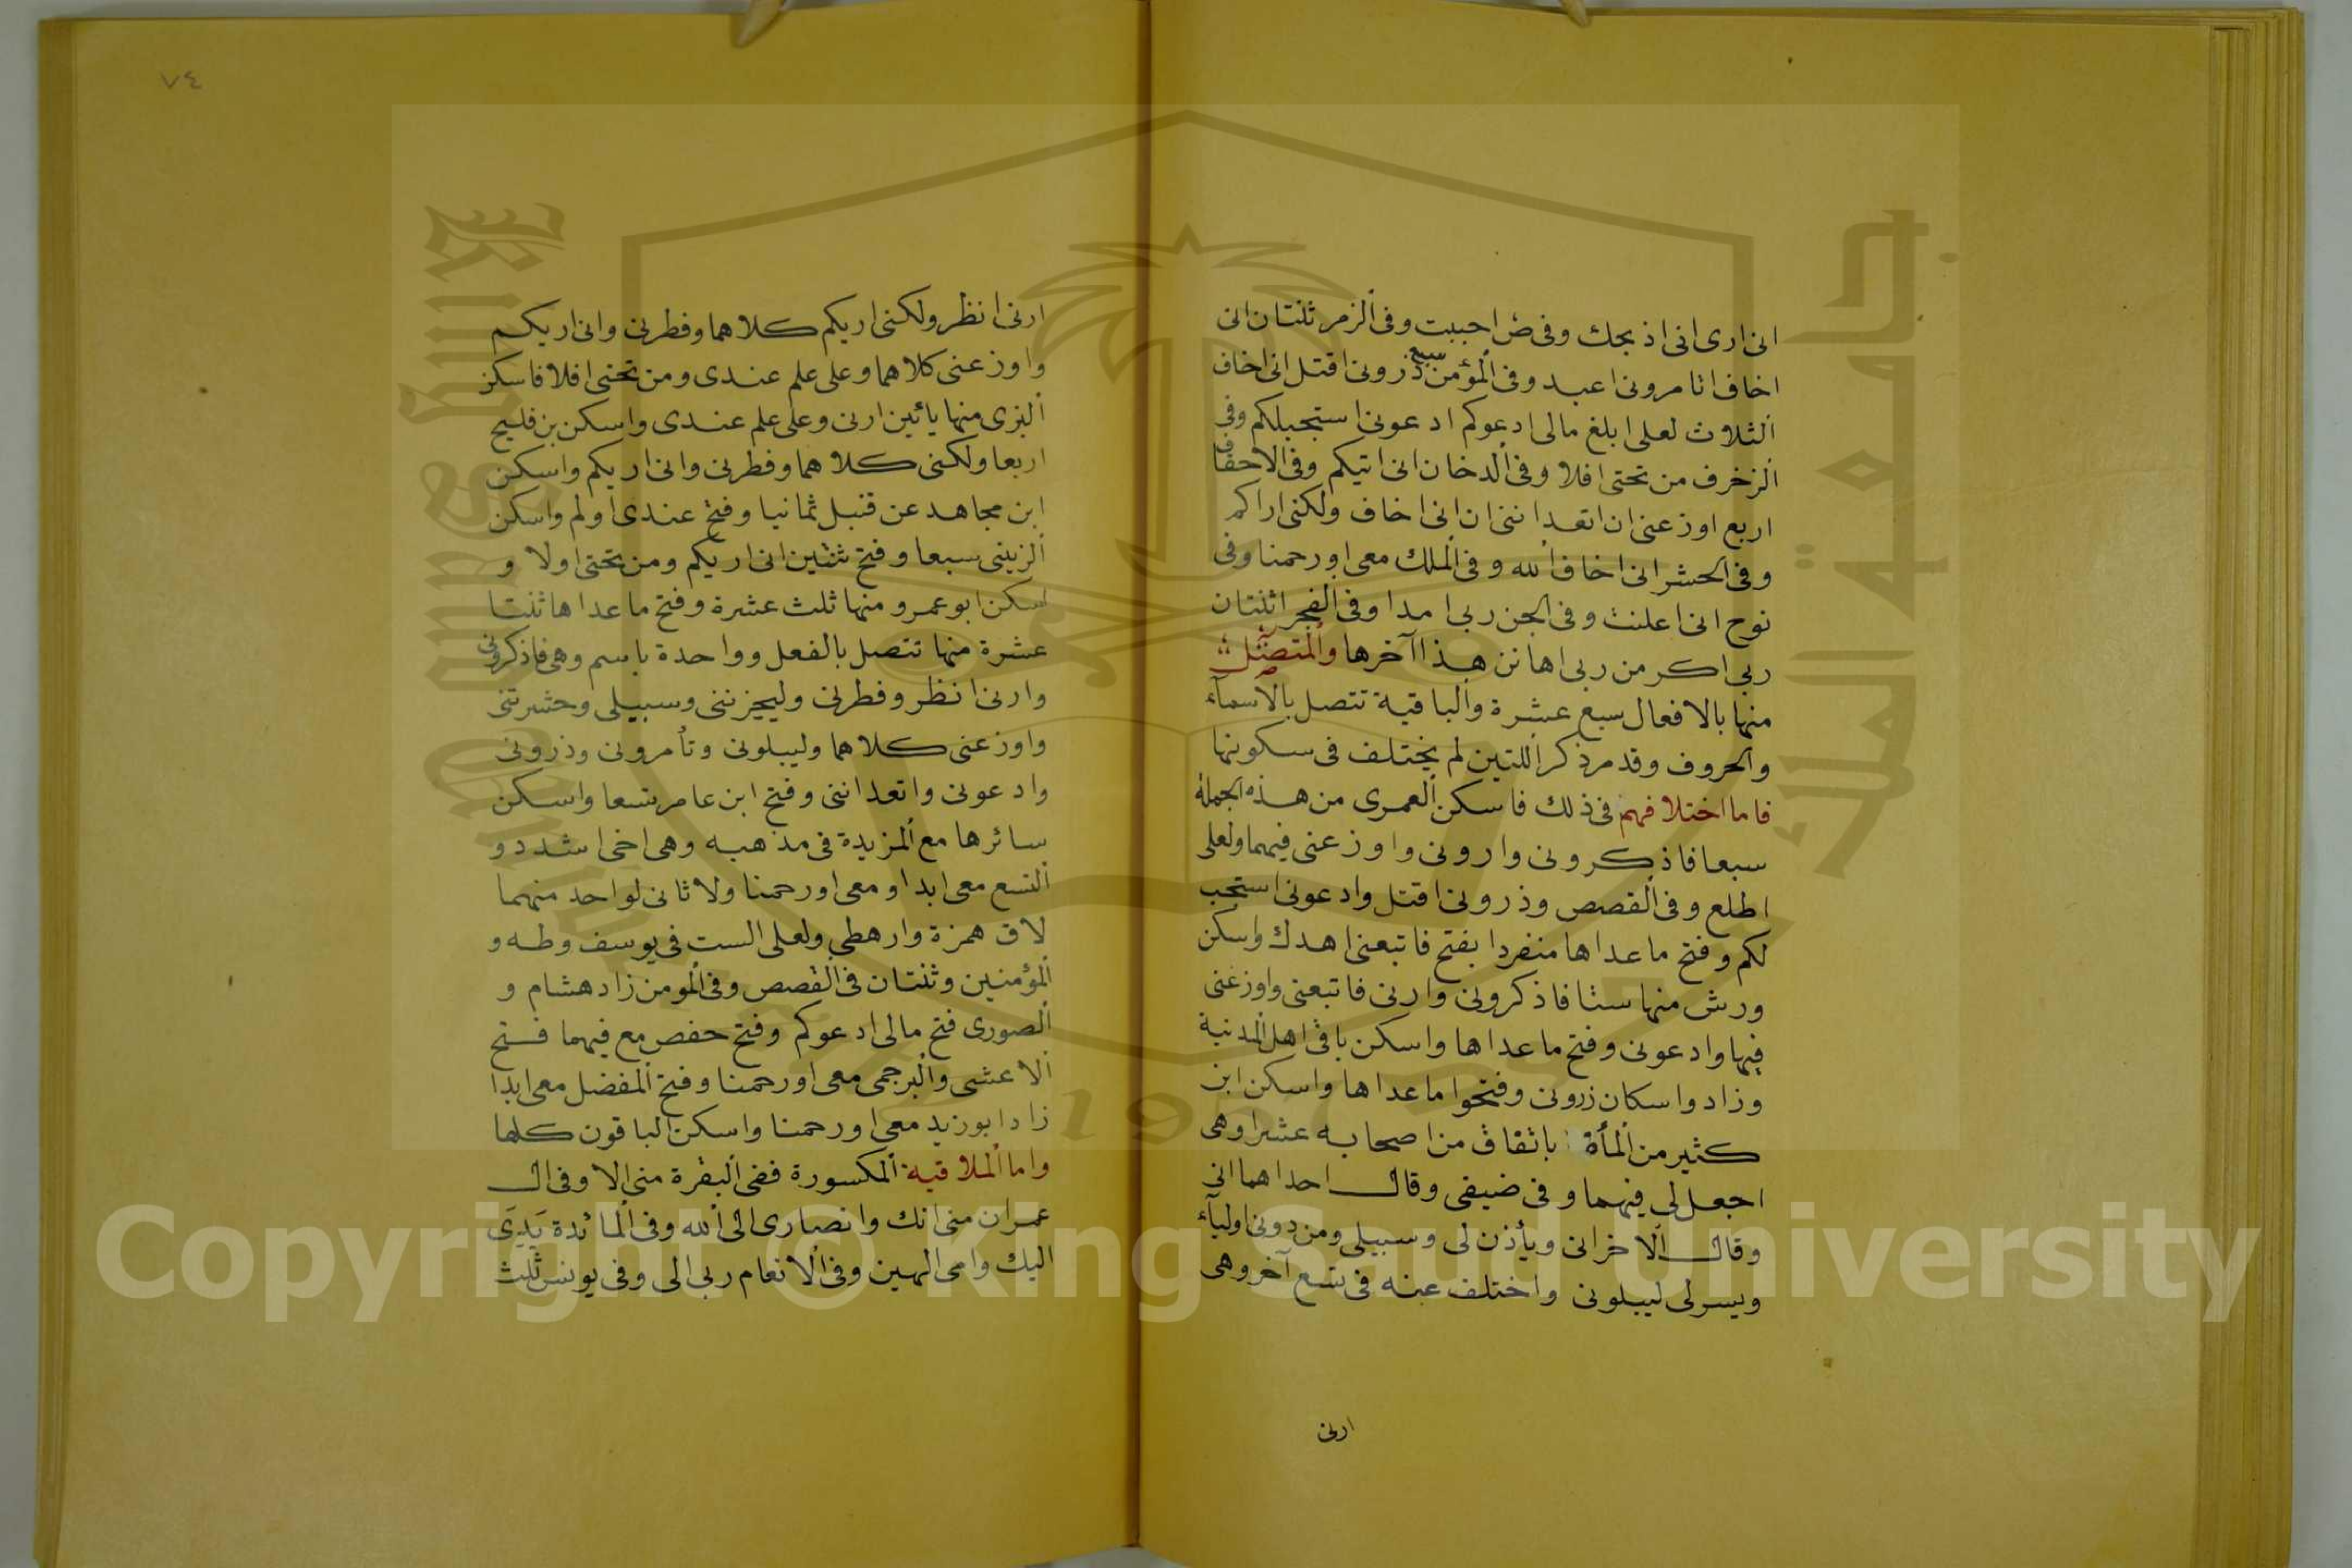 انى ارى انى اذبحك وفى ص احببت وفى الزمر ثنتان انى
اخاف تامرونى اعبد وفى المؤمن سبع ذرونى اقتل انى اخاف
الثلاث لعلى ابلغ مالى ادعوكم ادعونى استجب لكم وفى
الزخرف من تحتى افلا وفى الدخان انى اتيكم وفى الاحقاف
اربع اوزعنى ان اتعداننى ان انى اخاف ولكنى اراكم
وفى الحشر انى اخاف الله وفى الملك معى اورحمنا وفى
نوح انى اعلنت وفى الجن ربى امدا وفى الفجر اثنتان
ربى اكرمن ربى اهانن هذا آخرها والمتصل
منها بالافعال سبع عشرة والباقية تتصل بالاسماء
والحروف وقد مر ذكر اللتين لم يختلف فى سكونها
فاما اختلافهم فى ذلك فاسكن العمرى من هذه الجملة
سبعا فاذكرونى وارونى واوزعنى فيهما ولعلى
اطلع وفى القصص وذرونى اقتل وادعونى استجب
لكم وفتح ما عداها منفردا بفتح فاتبعنى اهدك واسكن
ورش منها ستا فاذكرونى وارنى فاتبعنى واوزعنى
فيها وادعونى وفتح ما عداها واسكن باقى اهل المدنية
وزادوا سكان زرونى وفتحوا ما عداها واسكن ابن
كثير من المأة باتفاق من اصحابه عشرا وهى
اجعل لى فيهما وفى ضيفى وقال احداهما انى
وقال الاخر انى ويأذن لى وسبيلى ومن دونى اولياء
ويسر لى ليبلونى واختلف عنه فى تسع آخر وهى
ارنى
٧٤
ارنى انظر ولكنى اريكم كلاهما وفطرنى وانى اريكم
واوزعنى كلاهما وعلى علم عندى ومن تحتى افلا فاسكن
البزى منها يائين ارنى وعلى علم عندى واسكن بن فليح
اربعا ولكنى كلاهما وفطرنى وانى اريكم واسكن
ابن مجاهد عن قنبل ثمانيا وفتح عندى اولم واسكن
الزينبى سبعا وفتح ثنتين انى اريكم ومن تحتى اولا و
اسكن ابو عمرو منها ثلث عشرة وفتح ما عداها ثنتا
عشرة منها تتصل بالفعل وواحدة باسم وهى فاذكرونى
وارنى انظر وفطرنى وليحزننى وسبيلى وحشرتنى
واوزعنى كلاهما وليبلونى وتأمرونى وذرونى
وادعونى واتعداننى وفتح ابن عامر تسعا واسكن
سائرها مع المزيدة فى مذهبه وهى اخى اشدد و
التسع معى ابدا ومعى اورحمنا ولا ثانى لواحد منهما
لاق همزة وارهطى ولعلى الست فى يوسف وطه و
المؤمنين وثنتان فى القصص وفى المومن زاد هشام و
الصورى فتح مالى ادعوكم وفتح حفص مع فيهما فتح
الاعشى والبرجمى معى اورحمنا وفتح المفضل معى ابدا
زاد ابو زيد معى اورحمنا واسكن الباقون كلها
واما الملاقية المكسورة ففى البقرة منى الا وفى ال
عمران منى انك وانصارى الى الله وفى المائدة يدى
اليك وامى الهين وفى الانعام ربى الى وفى يونس ثلث
Copyright © King Saud University